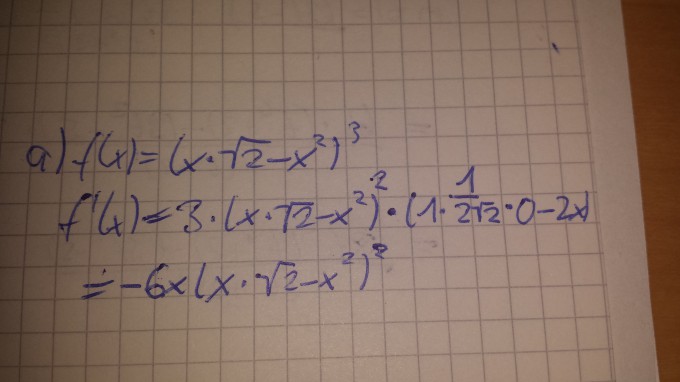 a) f(x) = (x·√2-x²)³
f'(x) = 3·(x·√2-x²)²·(1·1/2√2·0-2x)
= -6x(x·√2-x²)²